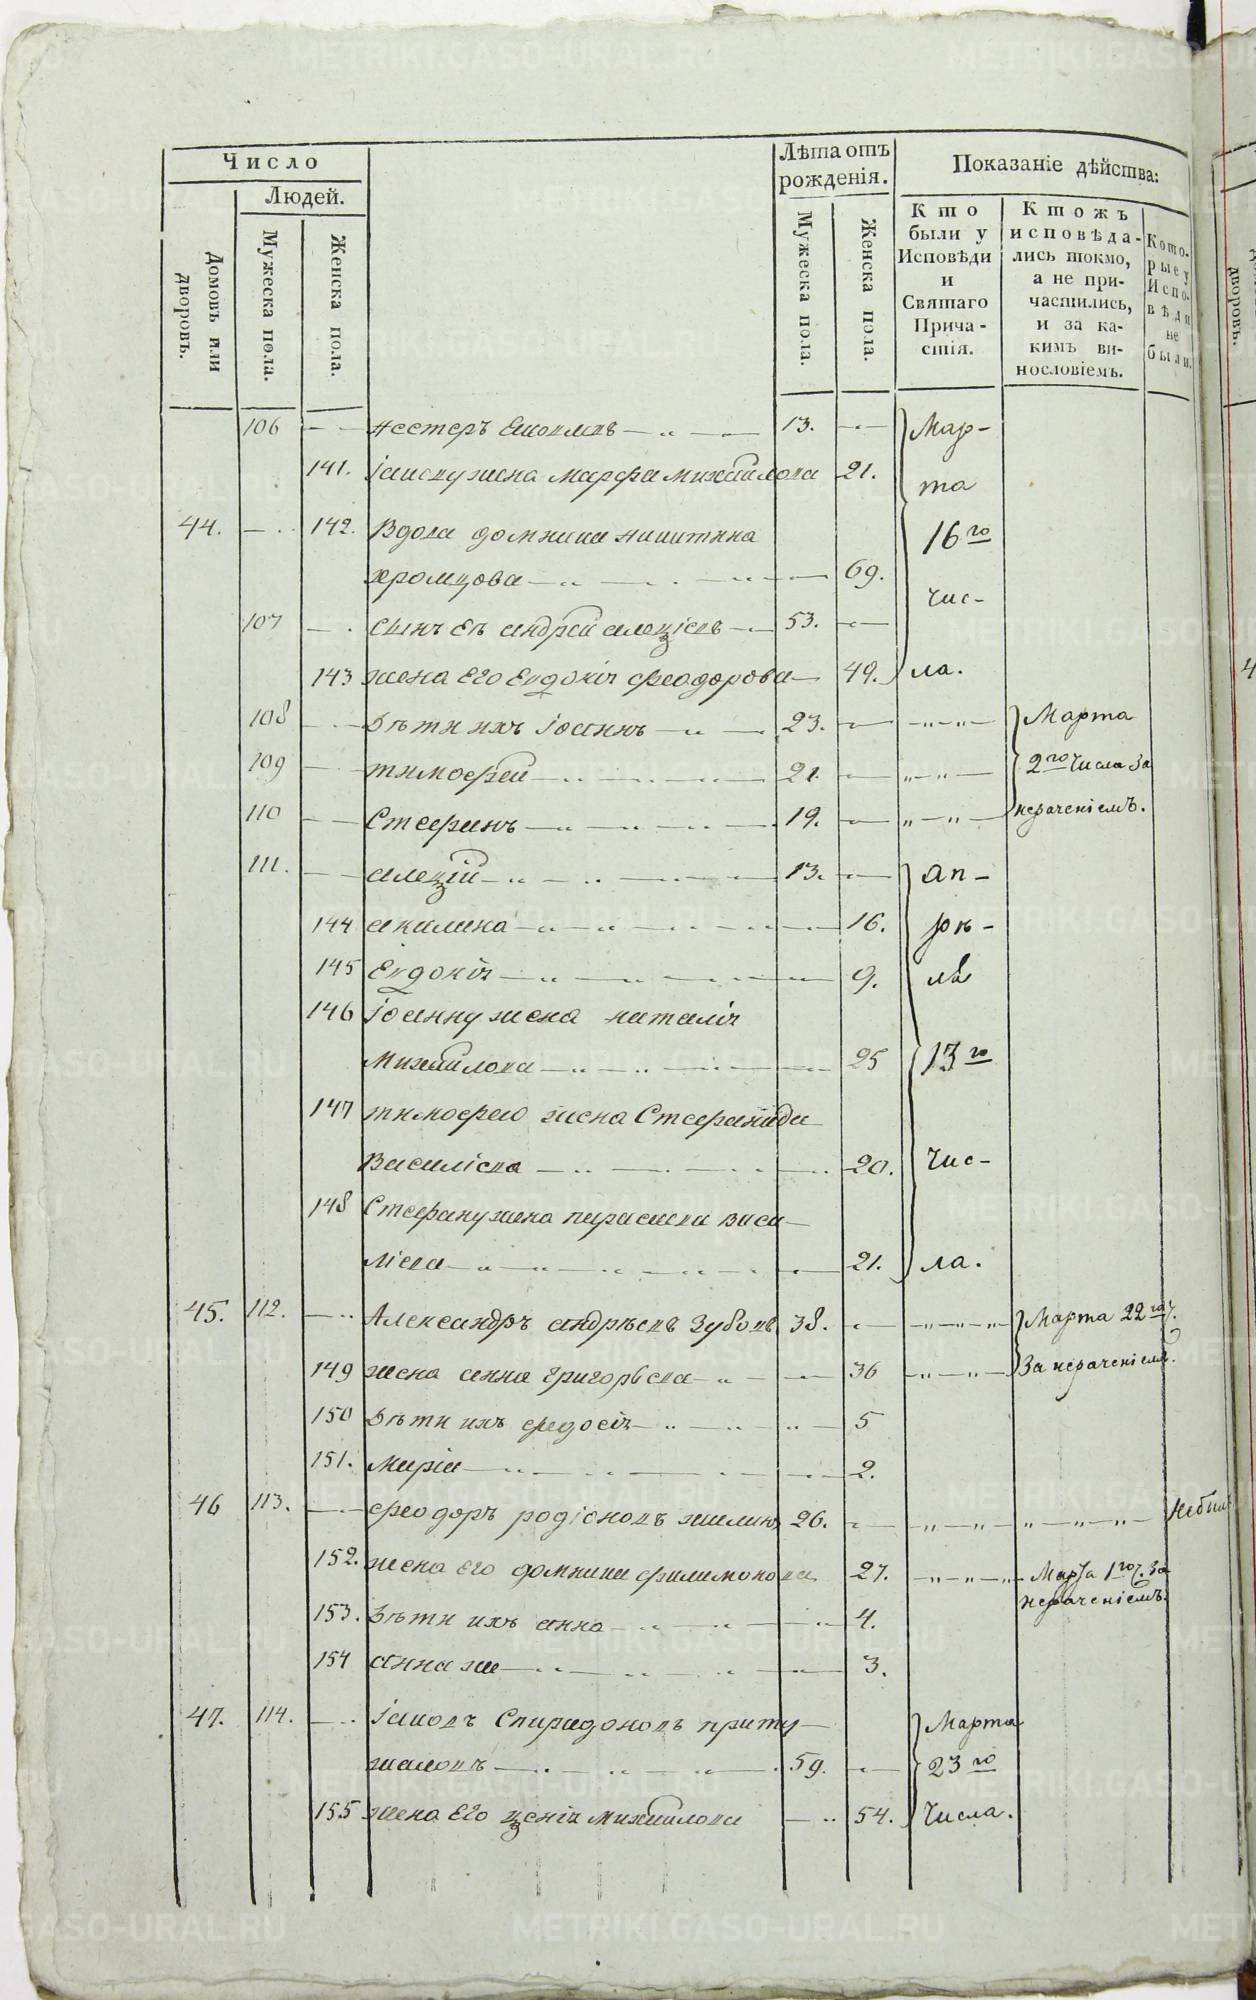 Число
Людей.
Домовъ или дворовъ.
Мужеска пола.
Женска пола.
Лѣта отъ рожденія.
Мужеска пола.
Женска пола.
Показаніе дѣйства:
Кто были у Исповѣди и Святаго Причастія.
Ктожъ исповѣдались токмо, а не причастились, и за какимъ винословіемъ.
Которые у Исповѣди не были.
106 13. Мар-
141. жена марфа михайлова 21. та
44. 142. Вдова домника никитина 16го
хромцова 69. чис-
107 сынъ Ея андрей алеѯіевъ 53.
143 жена Его Евдокія феодорова 49. ла.
108 Дѣти ихъ Іоаннъ 23. Марта
109 тимофей 21. 2го числа за
110 Стефанъ 19. нерачениемъ.
111. алеѯій 13. ап-
144 акилина 16. рѣ-
145 Евдокія 9. ля
146 Іоанну жена наталія
михайлова 25 13го
147 тимофею жена Стефанида
Василіева 20. чис-
148 Стефану жена параскева васи-
ліева 21. ла.
45. 112. Александръ андрѣевъ Зубовъ 38. Марта 22го ч.
149 жена анна григорьева 36 За нерачениемъ.
150 Дѣти ихъ федосія 5
151. марія 2.
46 113. феодоръ родіоновъ 26.
152. жена Его домника филимонова 27. Марта 1го ч. за
нерачениемъ.
153. Дѣти ихъ анна 4.
154 анна же 3.
47. 114. Іаковъ Спиридоновъ приту- Марта
жаловъ 59. 23го
155 жена Его ѯенія михайлова 54. числа.
METRIKI.GASO-URAL.RU